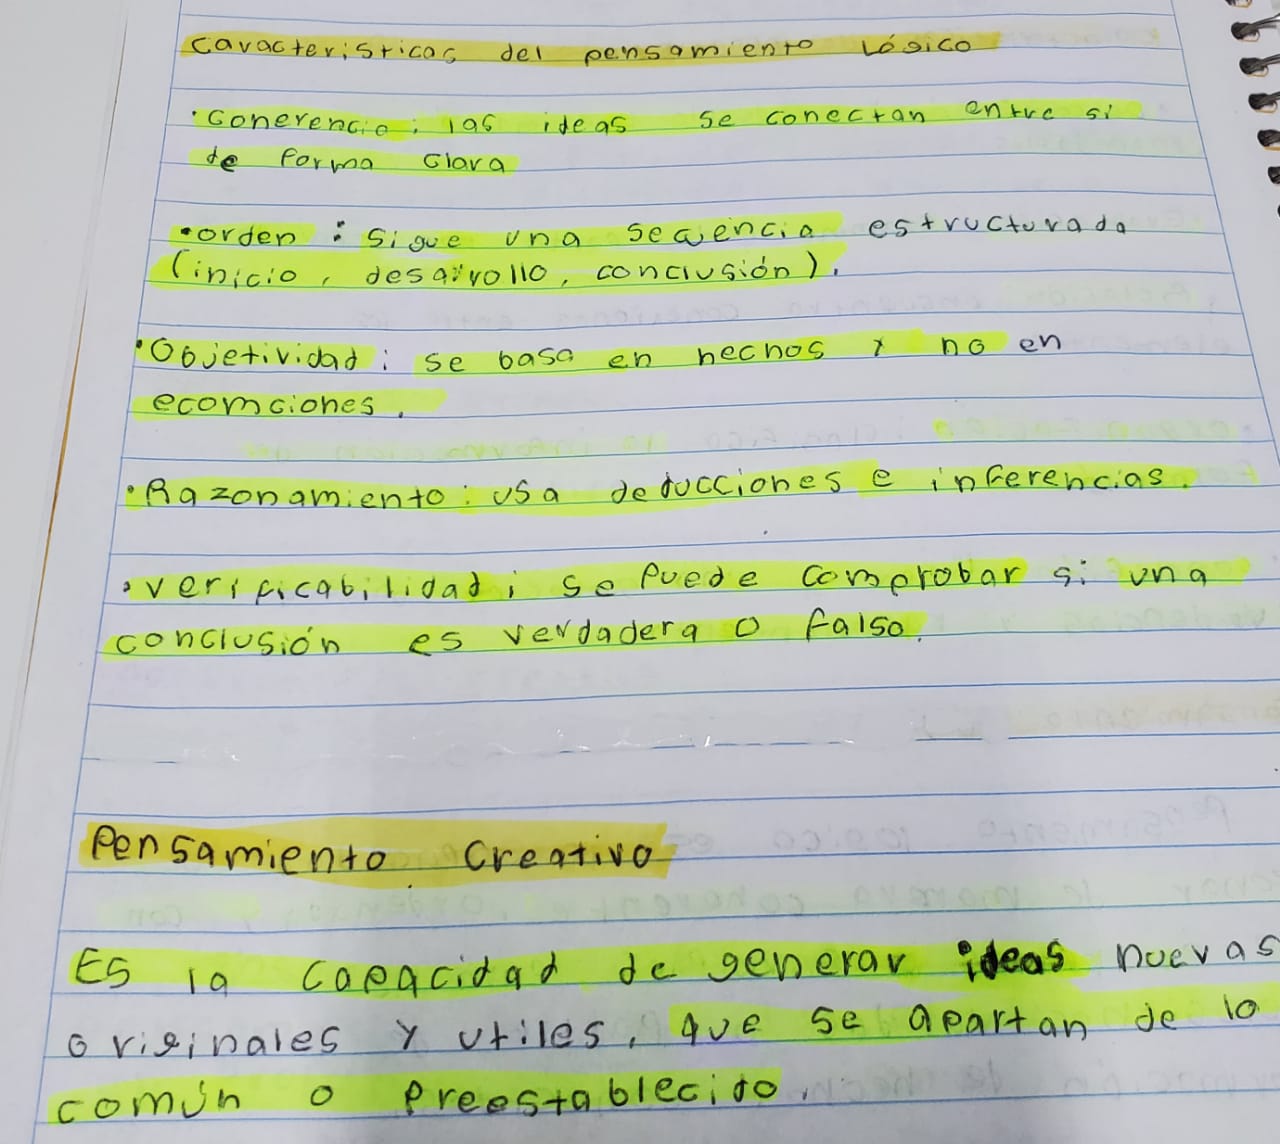 Características del pensamiento Lógico
• Coherencia: las ideas se conectan entre si
de forma clara
• orden: sigue una secuencia estructurada
(inicio, desarrollo, conclusión).
• Objetividad: se basa en hechos y no en
ecomciones.
• Razonamiento: usa deducciones e inferencias.
• verificabilidad: se puede comprobar si una
conclusión es verdadera o falsa.
Pensamiento Creativo
Es la capacidad de generar ideas nuevas
originales y utiles, que se apartan de lo
común o preestablecido.